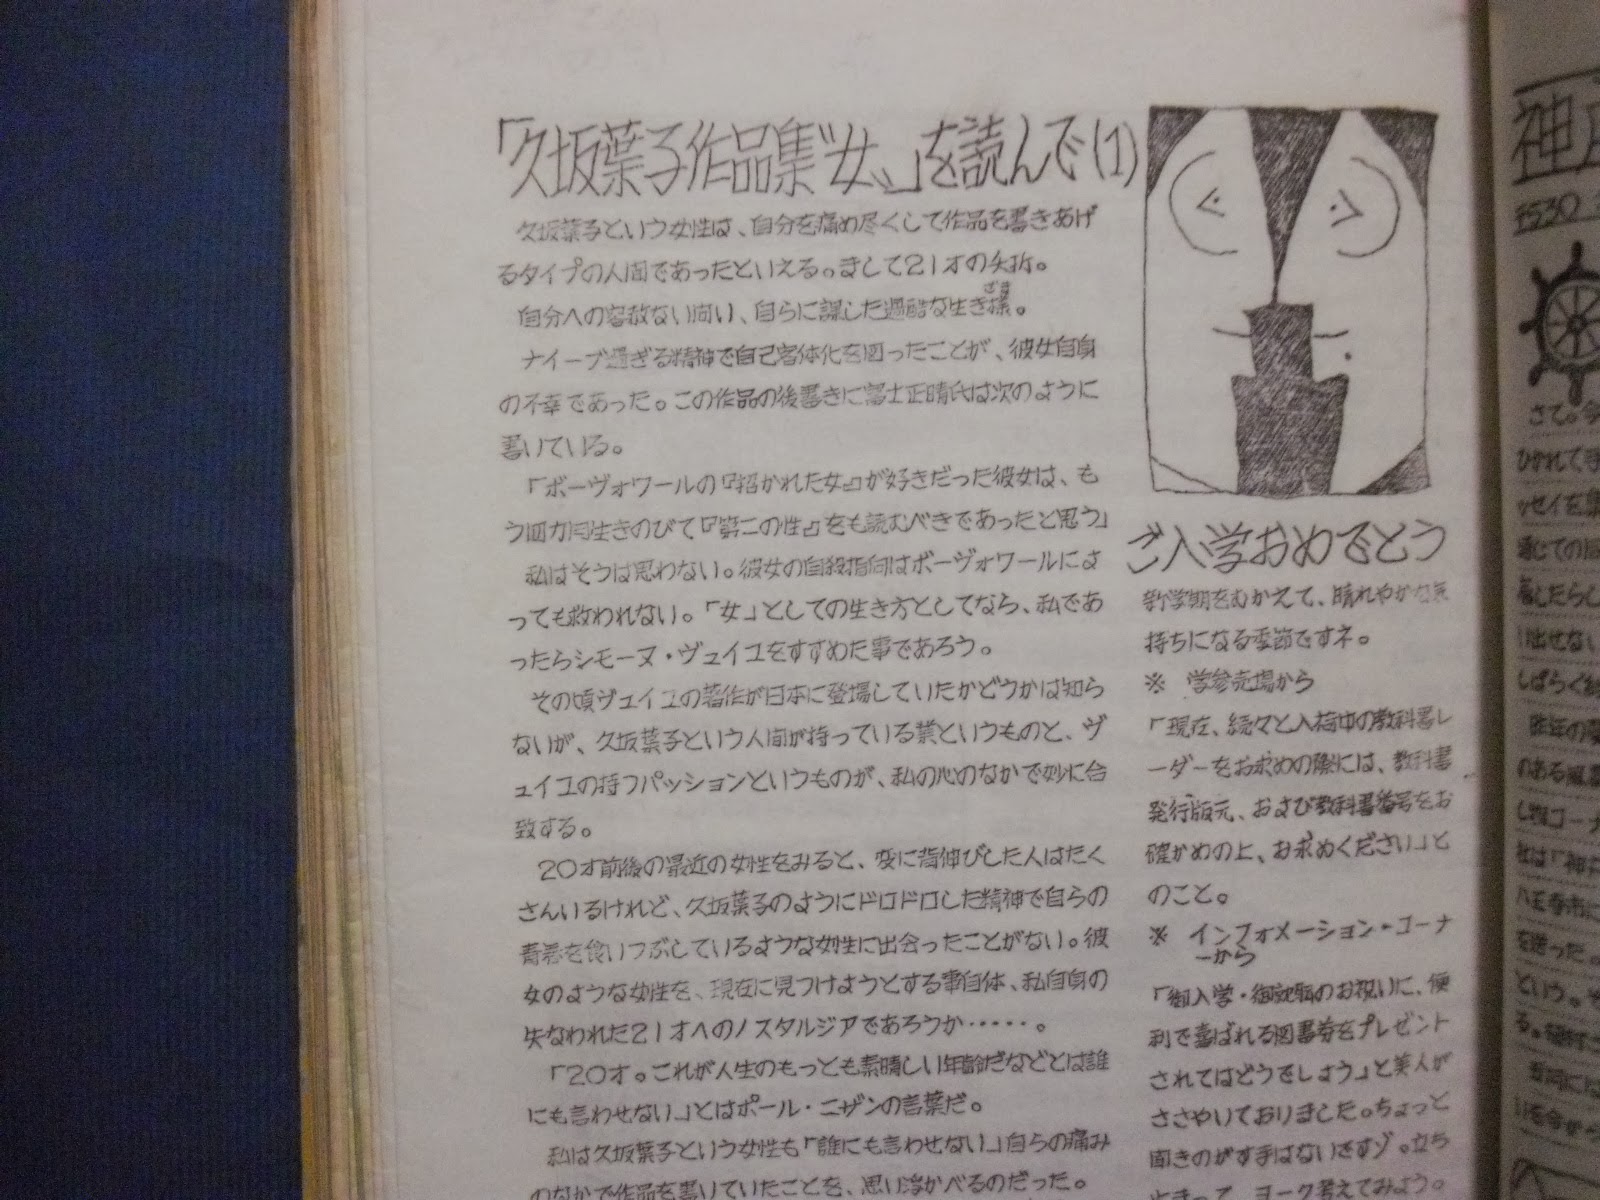 「久坂葉子作品集“女”」を読んで(1)
久坂葉子という女性は、自分を痛め尽くして作品を書きあげ
るタイプの人間であったといえる。まして21才の夭折。
自分への容赦ない問い、自らに課した過酷な生き様。
ざま
ナイーブ過ぎる精神で自己客体化を図ったことが、彼女自身
の不幸であった。この作品の後書きに富士正晴氏は次のように
書いている。
「ボーヴォワールの『招かれた女』が好きだった彼女は、も
う四カ月生きのびて『第二の性』をも読むべきであったと思う」
私はそうは思わない。彼女の自殺指向はボーヴォワールによ
っても救われない。「女」としての生き方としてなら、私であ
ったらシモーヌ・ヴェイユをすすめた事であろう。
その頃ヴェイユの著作が日本に登場していたかどうかは知ら
ないが、久坂葉子という人間が持っている業というものと、ヴ
ェイユの持つパッションというものが、私の心のなかで妙に合
致する。
20才前後の最近の女性をみると、変に背伸びした人はたく
さんいるけれど、久坂葉子のようにドロドロした精神で自らの
青春を食いつぶしているような女性に出会ったことがない。彼
女のような女性を、現在に見つけようとする事自体、私自身の
失なわれた21才へのノスタルジアであろうか……。
「20才。これが人生のもっとも素晴しい年齢だなどとは誰
にも言わせない」とはポール・ニザンの言葉だ。
私は久坂葉子という女性も「誰にも言わせない」自らの痛み
のなかで作品を書いていたことを、思い浮かべるのだった。
ご入学おめでとう
新学期をむかえて、晴れやかな気
持ちになる季節ですネ。
※ 学参売場から
「現在、続々と入荷中の教科書レ
ーダーをお求めの際には、教科書
発行版元、および教科書番号をお
確かめの上、お求めください」と
のこと。
※ インフォメーション・コーナ
ーから
「御入学・御就職のお祝いに、便
利で喜ばれる図書券をプレゼント
されてはどうでしょう」と美人が
ささやいておりました。ちょっと
聞きのがす手はないですゾ。立ち
止まって、ヨーク考えてみよう。
神戸
〒530
さて。今
ひかれて手
ッセイを集
通じての
らし
出せない
しばらく
昨年の夏
のある風景
し物コーナ
社は「神戸
八王寺市に
を送った。
という。そ
る。